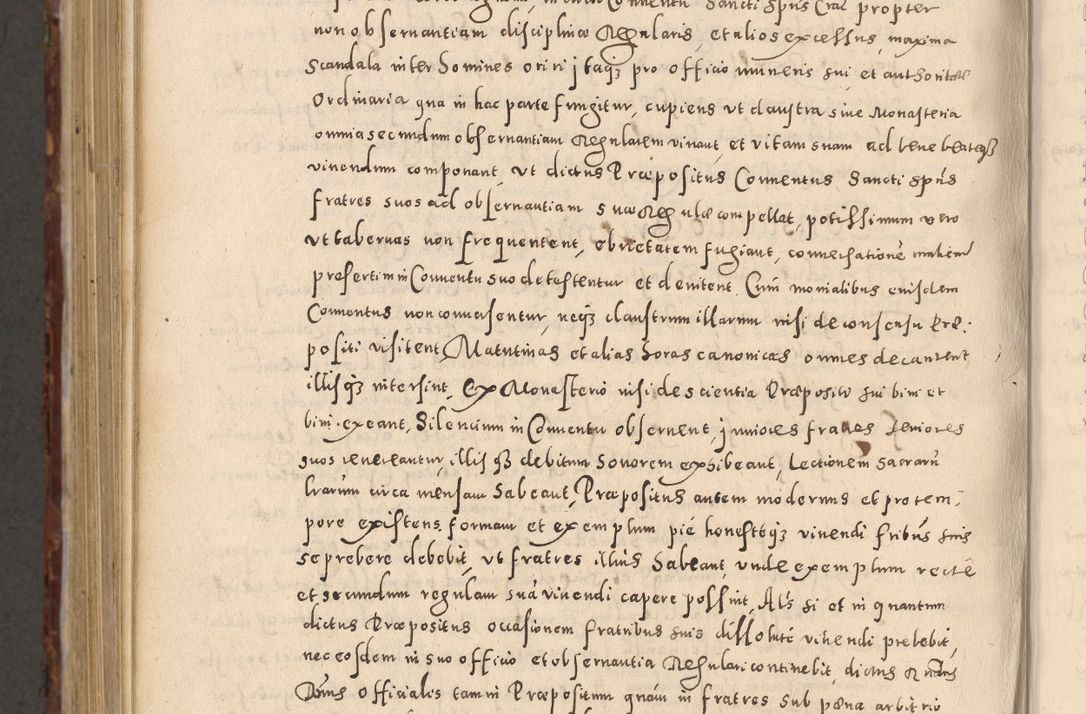 Conventu Sancti Spũs Crac propter
non observantiam disciplinæ Regularis, et alios excessus, maxima
Scandala inter homines oriri itaqȝ pro officio muneris sui et authoritate
Ordinaria qua in hac parte fungitur, cupiens vt claustra sive Monasteria
omnia secundum observantiam Regularem vivant, et vitam suam ad bene beateqȝ
vivendum componant, vt dictus Præpositus Conventus Sancti Spũs
fratres suos ad observantiam suæ Regulæ compellat, potissimum vero
vt tabernas non frequentent, ebrietatem fugiant, conversationẽ mulierũ
presertim in Conventu suo detestentur et devitent. Cum monialibus eiusdem
Conventus non conversentur, neqȝ claustrum illarum nisi de consensu Præ-
positi visitent, Matutinas et alias horas canonicas omnes decantent
illisqȝ intersint, Ex Monasterio nisi de scientia Præpositi sui bini et
bini exeant, Silencium in Conventu observent, iuniores fratres Seniores
suos revereantur, illisqȝ debitum honorem exhibeant, Lectionem sacrarũ
lrarum circa mensam habeant, Præpositus autem modernus et pro tem-
pore existens formam et exemplum pie honesteqȝ vivendi fribus suis
se prebere debebit, vt fratres illius habeant, unde exemplum recte
et secundum regulam suã vivendi capere possint, Als si et in quantum
dictus Præpositus occasionem fratribus suis dissolute vivendi prebebit,
nec eosdem in suo officio et observantia Regulari continebit, dictus Rndus
Dñus Officialis tam in Præpositum quam in fratres sub pœna arbitrio